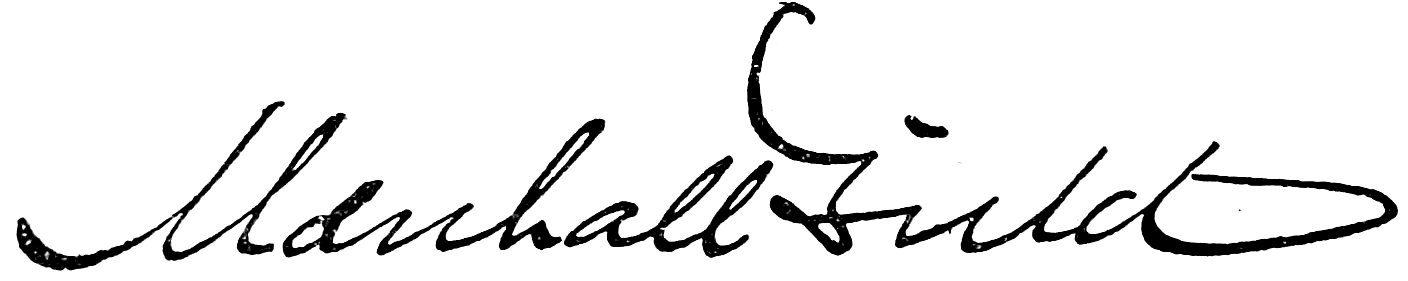 Marshall Field